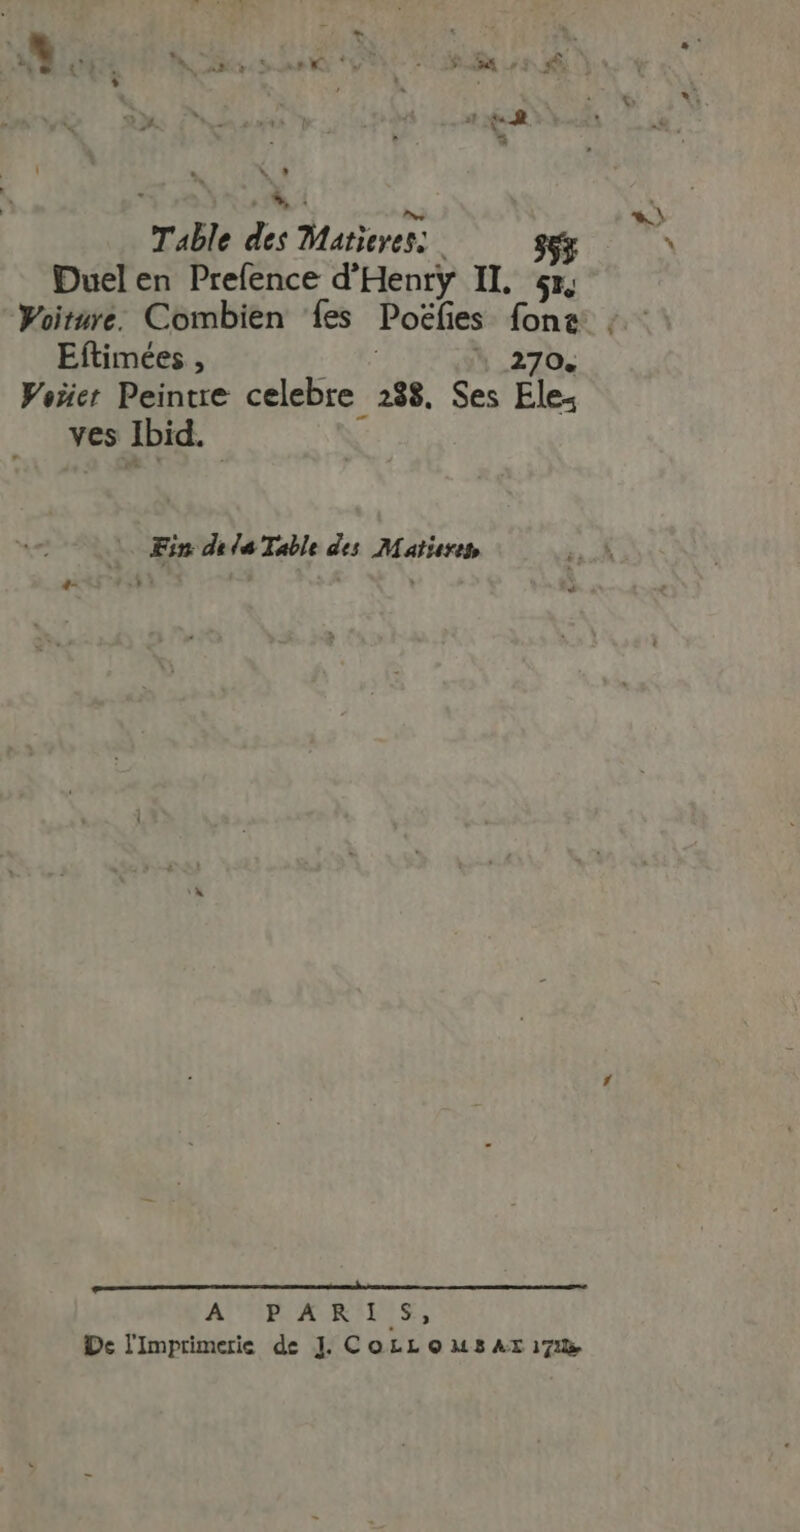 Table des Matieres.
Duel en Preſence d'Henry II. 51.
Voiture. Combien ſes Poëſies ſont
Eſtimées, 270.
Voüet Peintre celebre 288. Ses Ele-
ves Ibid.
Fin de la Table des Matieres
A PARIS,
De l'Imprimerie de J. COLLOMBAT